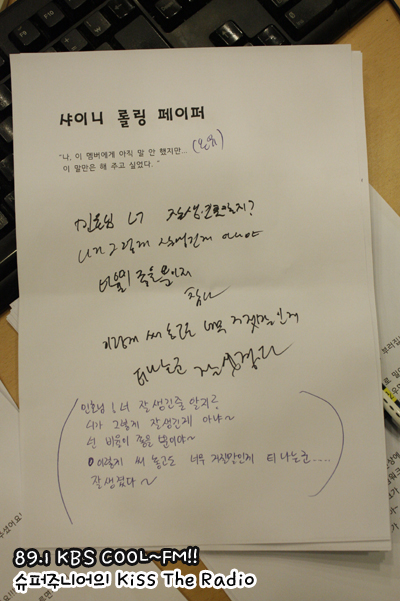 샤이니 롤링 페이퍼
"나, 이 멤버에게 아직 말 안 했지만...
이 말만은 해 주고 싶었다. "
민호님 너
니가 그렇게 잘생긴게 아냐
비율이 좋을 뿐이지
참나
이렇게 써 놓고도 너무 거짓말인게
티나는군 잘생겼다
민호님! 너 잘 생긴줄 알지?
니가 그렇게 잘생긴게 아냐~
넌 비율이 좋을 뿐이야~
이렇게 써 놓고도 너무 거짓말인게 티 나는군....
잘생겼다~
89.1 KBS COOL~FM!!
슈퍼주니어의 Kiss The Radio